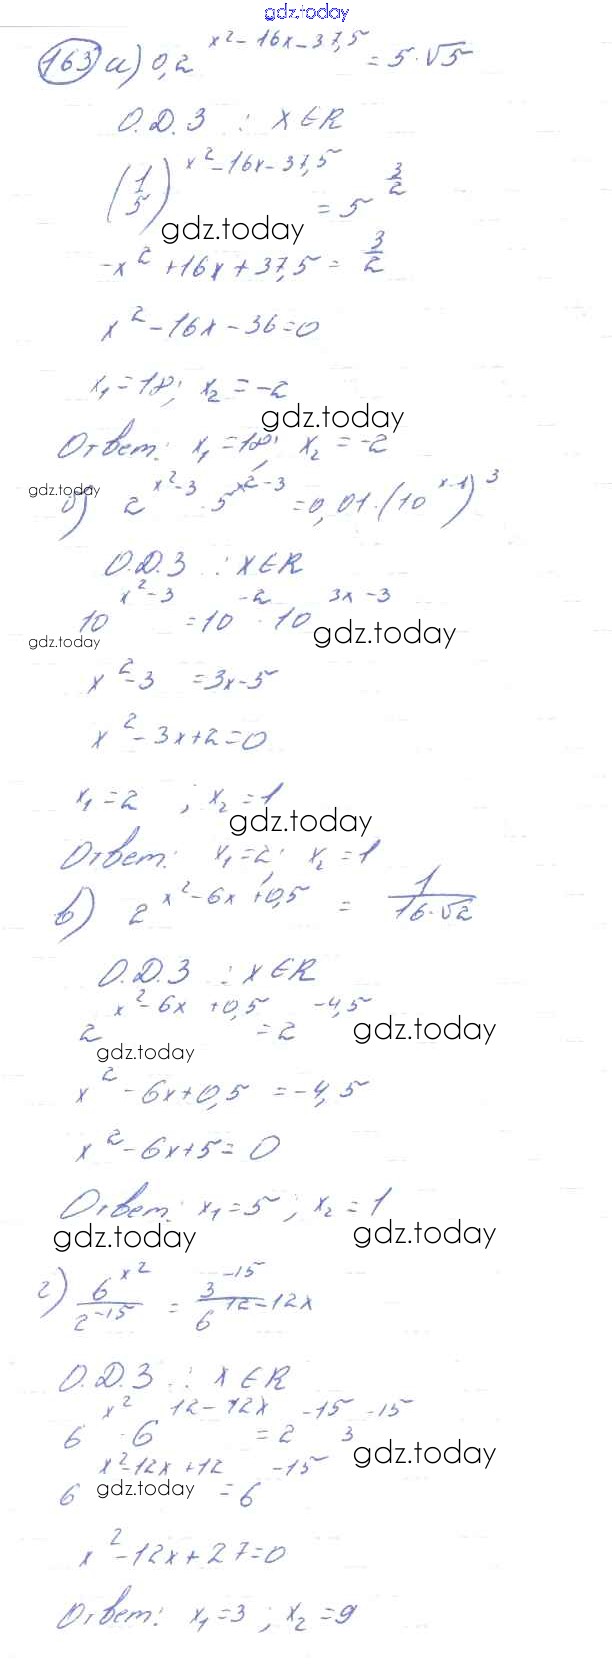 gdz.today
163 а) 0,2^(x²-16x-37,5) = 5·√5
О.Д.З : x∈R
(1/5)^(x²-16x-37,5) = 5^(3/2)
gdz.today
-x²+16x+37,5 = 3/2
x²-16x-36=0
x₁=18; x₂=-2
gdz.today
Ответ: x₁=18; x₂=-2
gdz.today
б) 2^(x²-3)·5^(x²-3) = 0,01·(10^(x-1))³
О.Д.З : x∈R
10^(x²-3) = 10^(-2)·10^(3x-3)
gdz.today gdz.today
x²-3 = 3x-5
x²-3x+2=0
x₁=2 ; x₂=1
gdz.today
Ответ: x₁=2; x₂=1
в) 2^(x²-6x+0,5) = 1/(16·√2)
О.Д.З : x∈R
2^(x²-6x+0,5) = 2^(-4,5)
gdz.today gdz.today
x²-6x+0,5 = -4,5
x²-6x+5=0
Ответ: x₁=5; x₂=1
gdz.today gdz.today
г) 6^(x²)/2^(-15) = 3^(-15)/6^(12-12x)
О.Д.З : x∈R
6^(x²)·6^(12-12x) = 2^(-15) 3^(-15)
gdz.today
6^(x²-12x+12) = 6^(-15)
gdz.today
x²-12x+27=0
Ответ: x₁=3; x₂=9